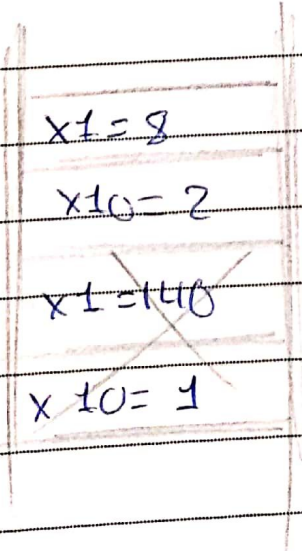 x1=8
x10=2
x1=140
x10=1